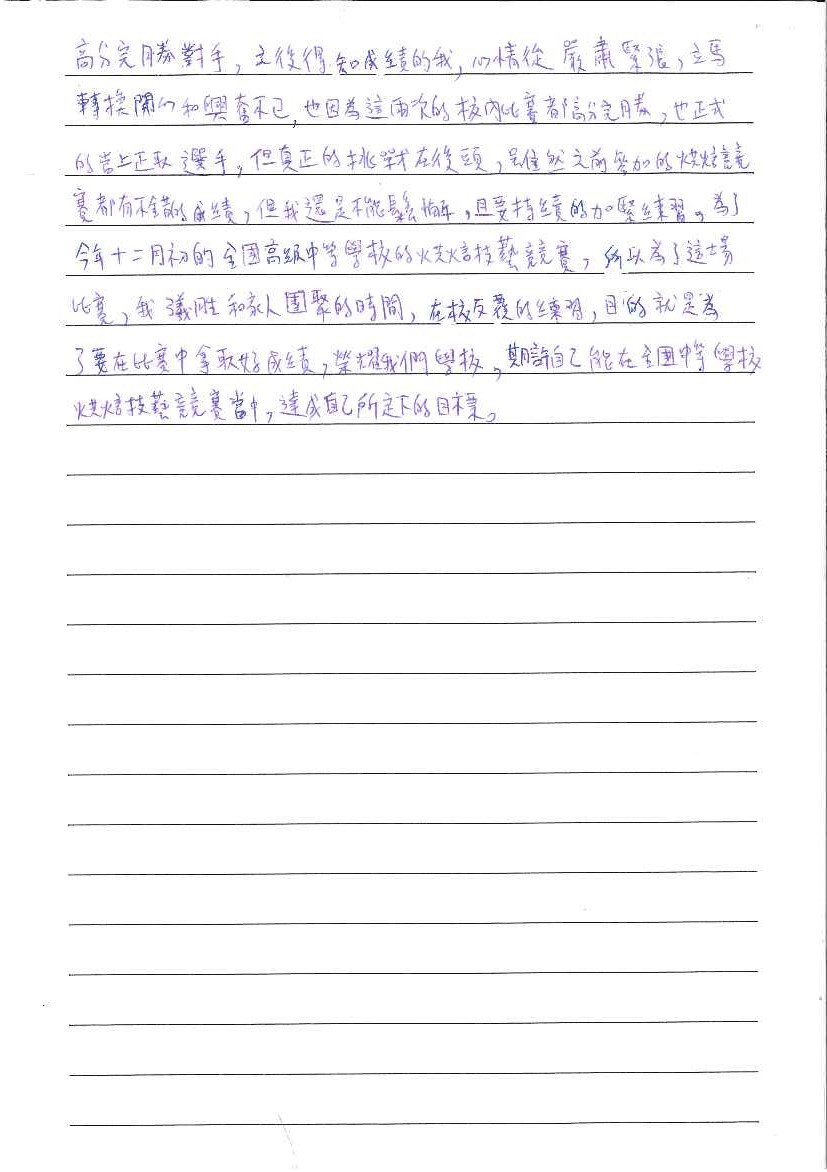 高分完勝對手，之後得知成績的我，心情從嚴肅緊張，立馬
轉換開心和興奮不已，也因為這兩次的校內比賽都高分完勝，也正式
的當上正取選手，但真正的挑戰在後頭，雖然之前參加的烘焙競
賽都有不錯的成績，但我還是不能鬆懈，且要持續的加緊練習。為了
今年十二月初的全國高級中等學校的烘焙技藝競賽，所以為了這場
比賽，我犧牲和家人團聚的時間，在校反覆的練習，目的就是為
了要在比賽中拿取好成績，榮耀我們學校，期許自己能在全國中等學校
烘焙技藝競賽當中，達成自己所定下的目標。